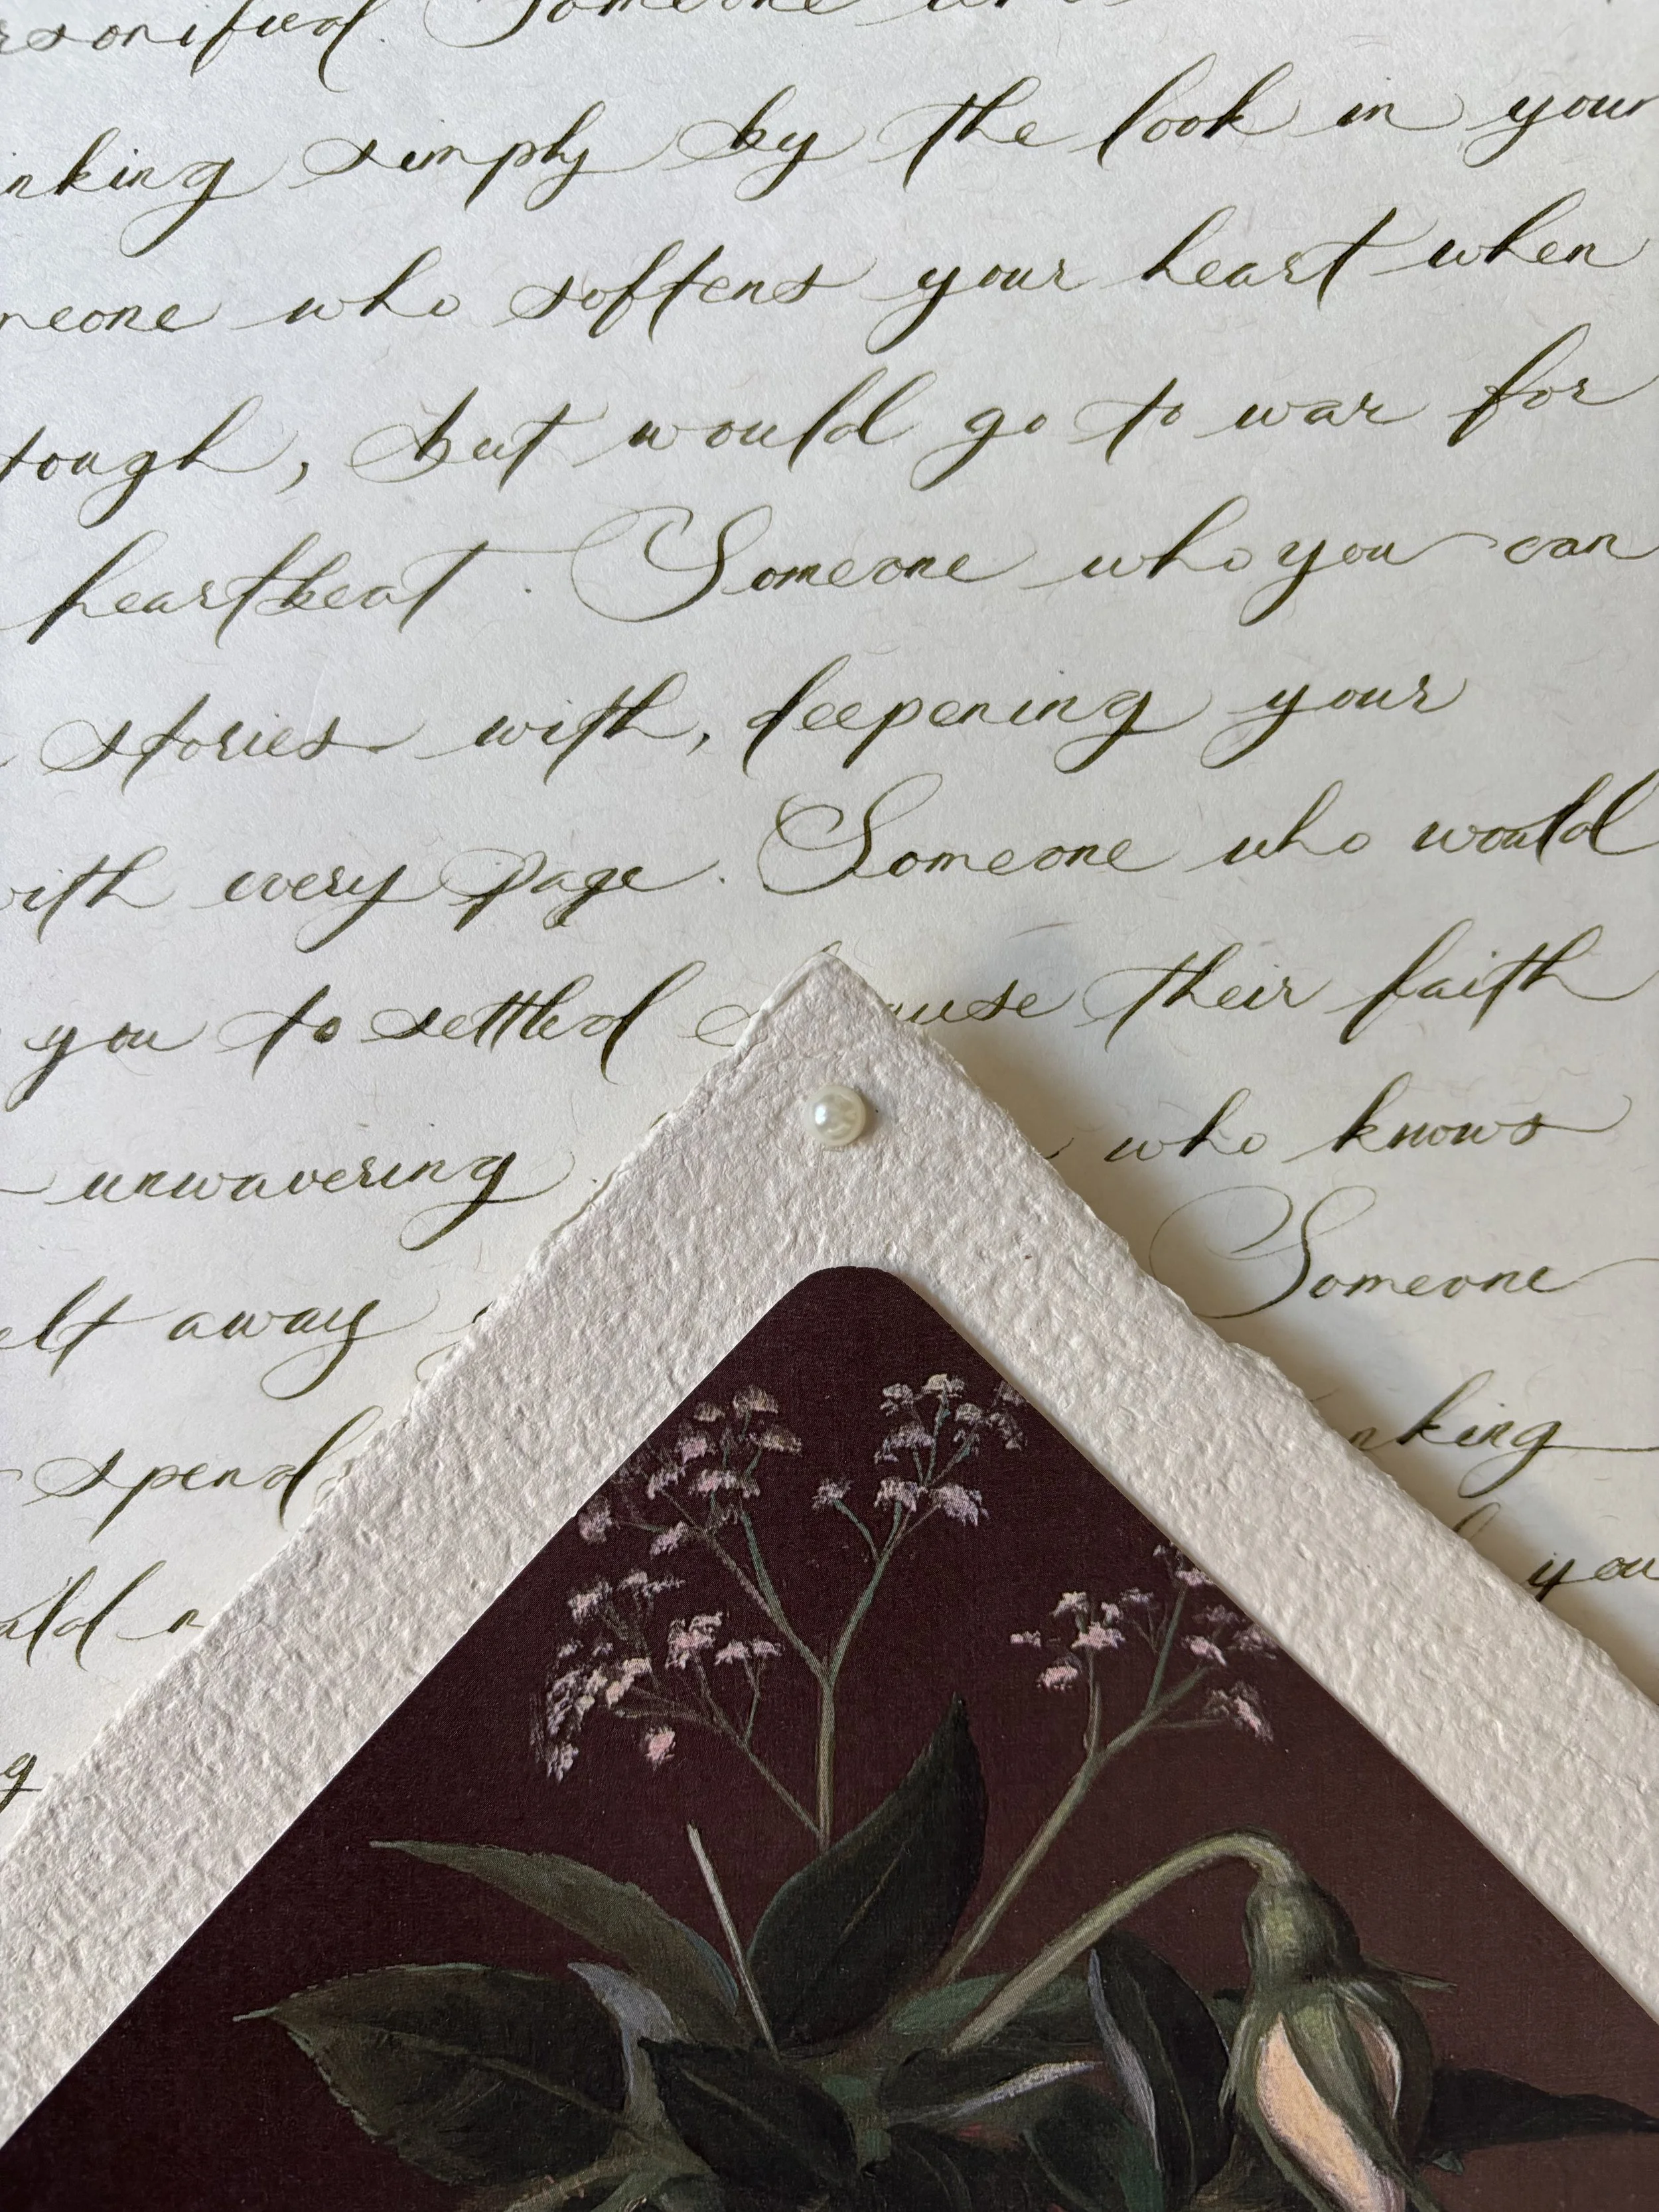 rsonified. Someone who
nking simply by the look in your
meone who softens your heart when
tough, but would go to war for
heartbeat. Someone who you can
stories with, deepening your
with every page. Someone who would
you to settled cause their faith
unwavering who knows
elt away Someone
spend nking
uld n you
g